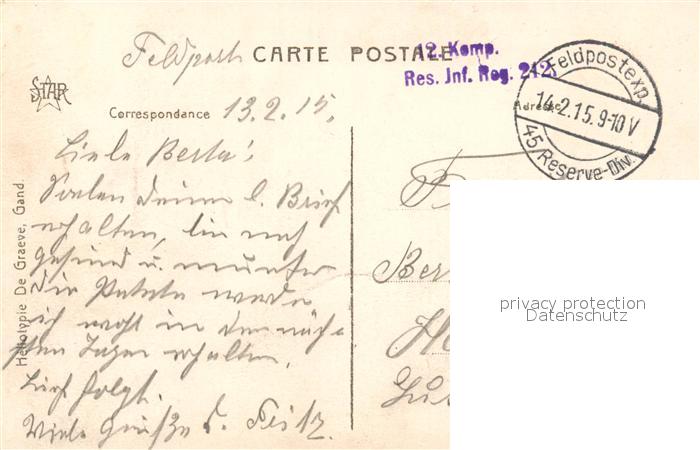 Feldpost CARTE POSTALE
12. Komp.
Res. Inf. Reg. 212.
Feldpostexp.
14.2.15.9-10V
45 Reserve-Div.
STAR
Correspondance 13.2.15.
Adresse
Liebe Berta!
Soeben deinen l. Brief
erhalten, bin noch
gesund u. munter
die Pakete werde
ich wohl in den näch-
sten Tagen erhalten.
Brief folgt.
Viele Grüße d. Fritz.
Heliotypie De Graeve, Gand.
Ber
privacy protection
Datenschutz